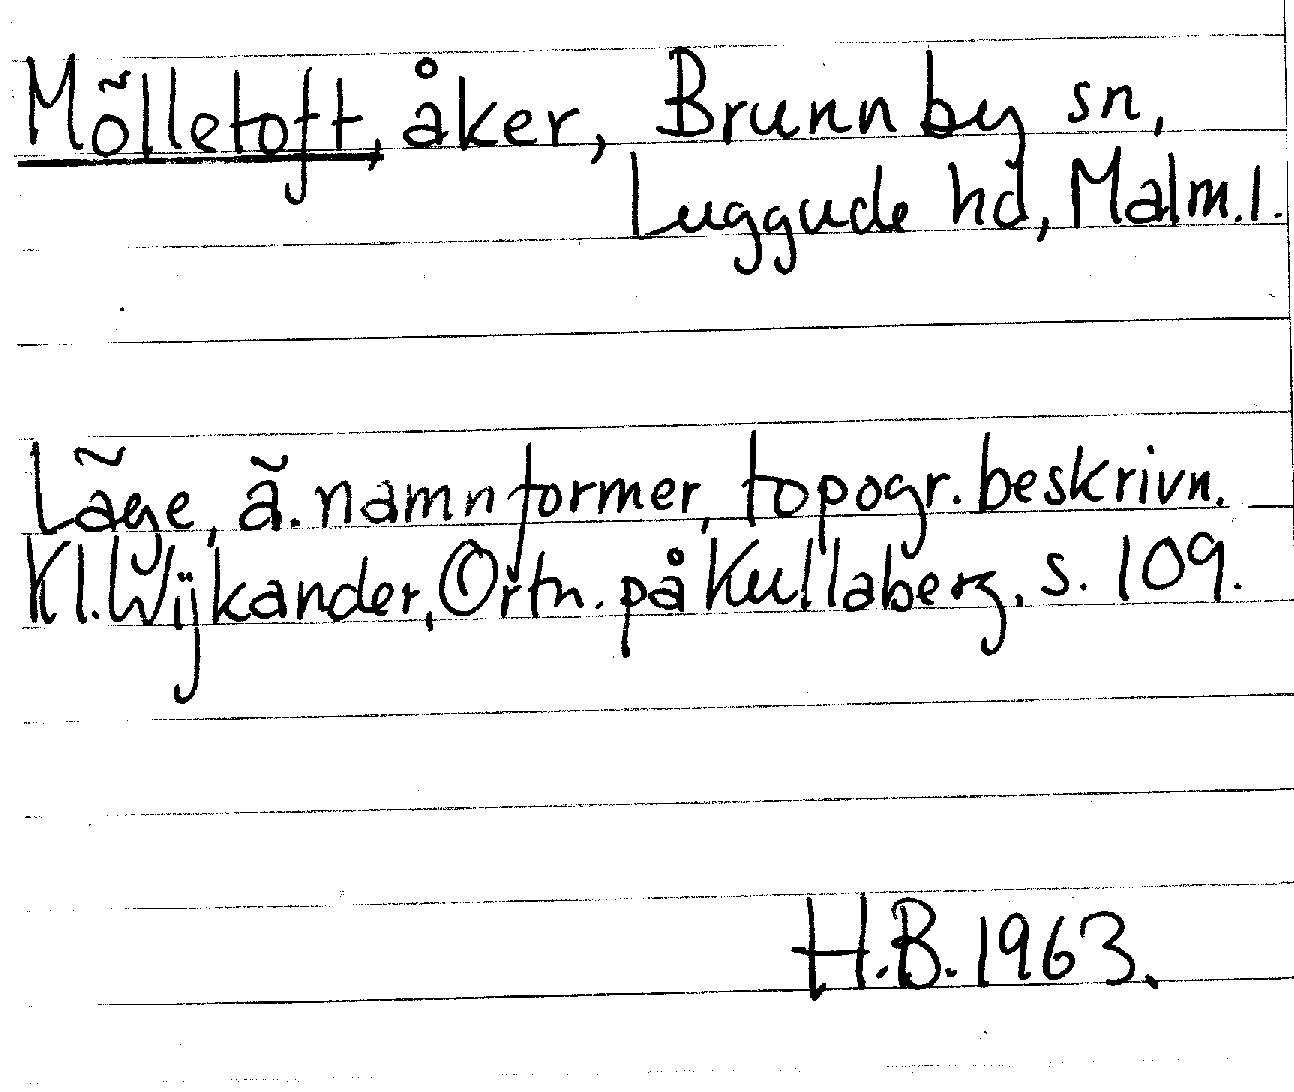 Mölletoft, åker, Brunnby sn,
Luggude hd, Malm.l.
Läge, ä. namnformer, topogr. beskrivn.
Kl. Wijkander, Ortn. på Kullaberg, s. 109.
H.B. 1963.